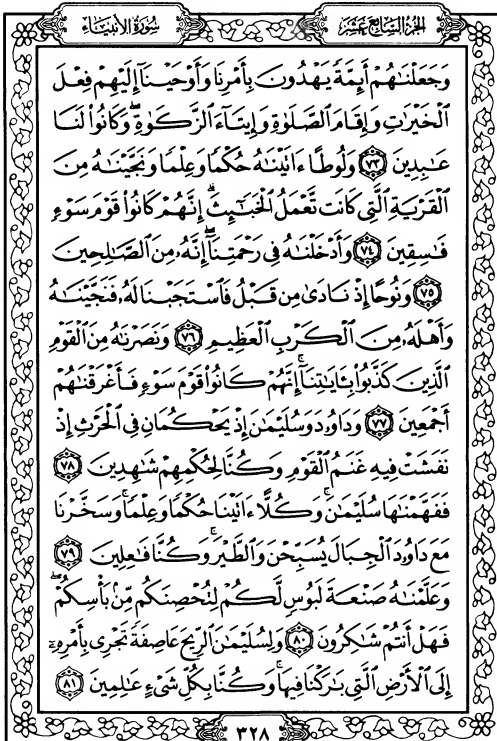 الجزء السابع عشر
سورة الأنبياء
وَجَعَلْنَٰهُمْ أَئِمَّةً يَهْدُونَ بِأَمْرِنَا وَأَوْحَيْنَآ إِلَيْهِمْ فِعْلَ
ٱلْخَيْرَٰتِ وَإِقَامَ ٱلصَّلَوٰةِ وَإِيتَآءَ ٱلزَّكَوٰةِۖ وَكَانُوا۟ لَنَا
عَٰبِدِينَ ﴿٧٣﴾ وَلُوطًا ءَاتَيْنَٰهُ حُكْمًا وَعِلْمًا وَنَجَّيْنَٰهُ مِنَ
ٱلْقَرْيَةِ ٱلَّتِى كَانَت تَّعْمَلُ ٱلْخَبَٰٓئِثَۗ إِنَّهُمْ كَانُوا۟ قَوْمَ سَوْءٍ
فَٰسِقِينَ ﴿٧٤﴾ وَأَدْخَلْنَٰهُ فِى رَحْمَتِنَآۖ إِنَّهُۥ مِنَ ٱلصَّٰلِحِينَ
﴿٧٥﴾ وَنُوحًا إِذْ نَادَىٰ مِن قَبْلُ فَٱسْتَجَبْنَا لَهُۥ فَنَجَّيْنَٰهُ
وَأَهْلَهُۥ مِنَ ٱلْكَرْبِ ٱلْعَظِيمِ ﴿٧٦﴾ وَنَصَرْنَٰهُ مِنَ ٱلْقَوْمِ
ٱلَّذِينَ كَذَّبُوا۟ بِـَٔايَٰتِنَآۚ إِنَّهُمْ كَانُوا۟ قَوْمَ سَوْءٍ فَأَغْرَقْنَٰهُمْ
أَجْمَعِينَ ﴿٧٧﴾ وَدَاوُۥدَ وَسُلَيْمَٰنَ إِذْ يَحْكُمَانِ فِى ٱلْحَرْثِ إِذْ
نَفَشَتْ فِيهِ غَنَمُ ٱلْقَوْمِ وَكُنَّا لِحُكْمِهِمْ شَٰهِدِينَ ﴿٧٨﴾
فَفَهَّمْنَٰهَا سُلَيْمَٰنَۚ وَكُلًّا ءَاتَيْنَا حُكْمًا وَعِلْمًاۚ وَسَخَّرْنَا
مَعَ دَاوُۥدَ ٱلْجِبَالَ يُسَبِّحْنَ وَٱلطَّيْرَۚ وَكُنَّا فَٰعِلِينَ ﴿٧٩﴾
وَعَلَّمْنَٰهُ صَنْعَةَ لَبُوسٍ لَّكُمْ لِتُحْصِنَكُم مِّنۢ بَأْسِكُمْۖ
فَهَلْ أَنتُمْ شَٰكِرُونَ ﴿٨٠﴾ وَلِسُلَيْمَٰنَ ٱلرِّيحَ عَاصِفَةً تَجْرِى بِأَمْرِهِۦٓ
إِلَى ٱلْأَرْضِ ٱلَّتِى بَٰرَكْنَا فِيهَاۚ وَكُنَّا بِكُلِّ شَىْءٍ عَٰلِمِينَ ﴿٨١﴾
٣٢٨